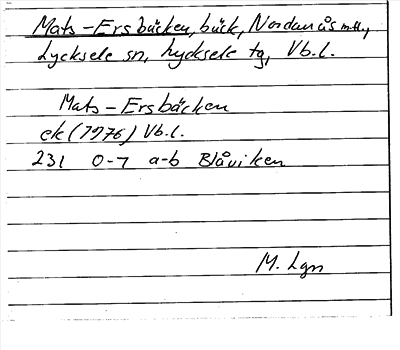 Mats-Ersbäcken, bäck, Nordanås m.fl.,
Lycksele sn, Lycksele tg, Vb.l.
Mats-Ersbäcken
ek (1976) Vb.l.
231 0-7 a-b Blåviken
M. Lgn